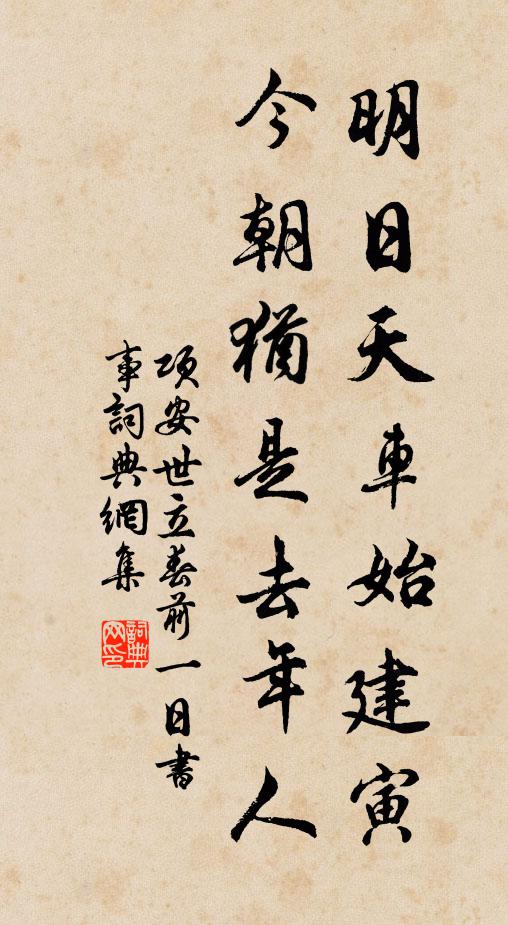 明日天車始建寅
今朝猶是去年人
項安世立春前一日書
事詞典網集
詞典網印